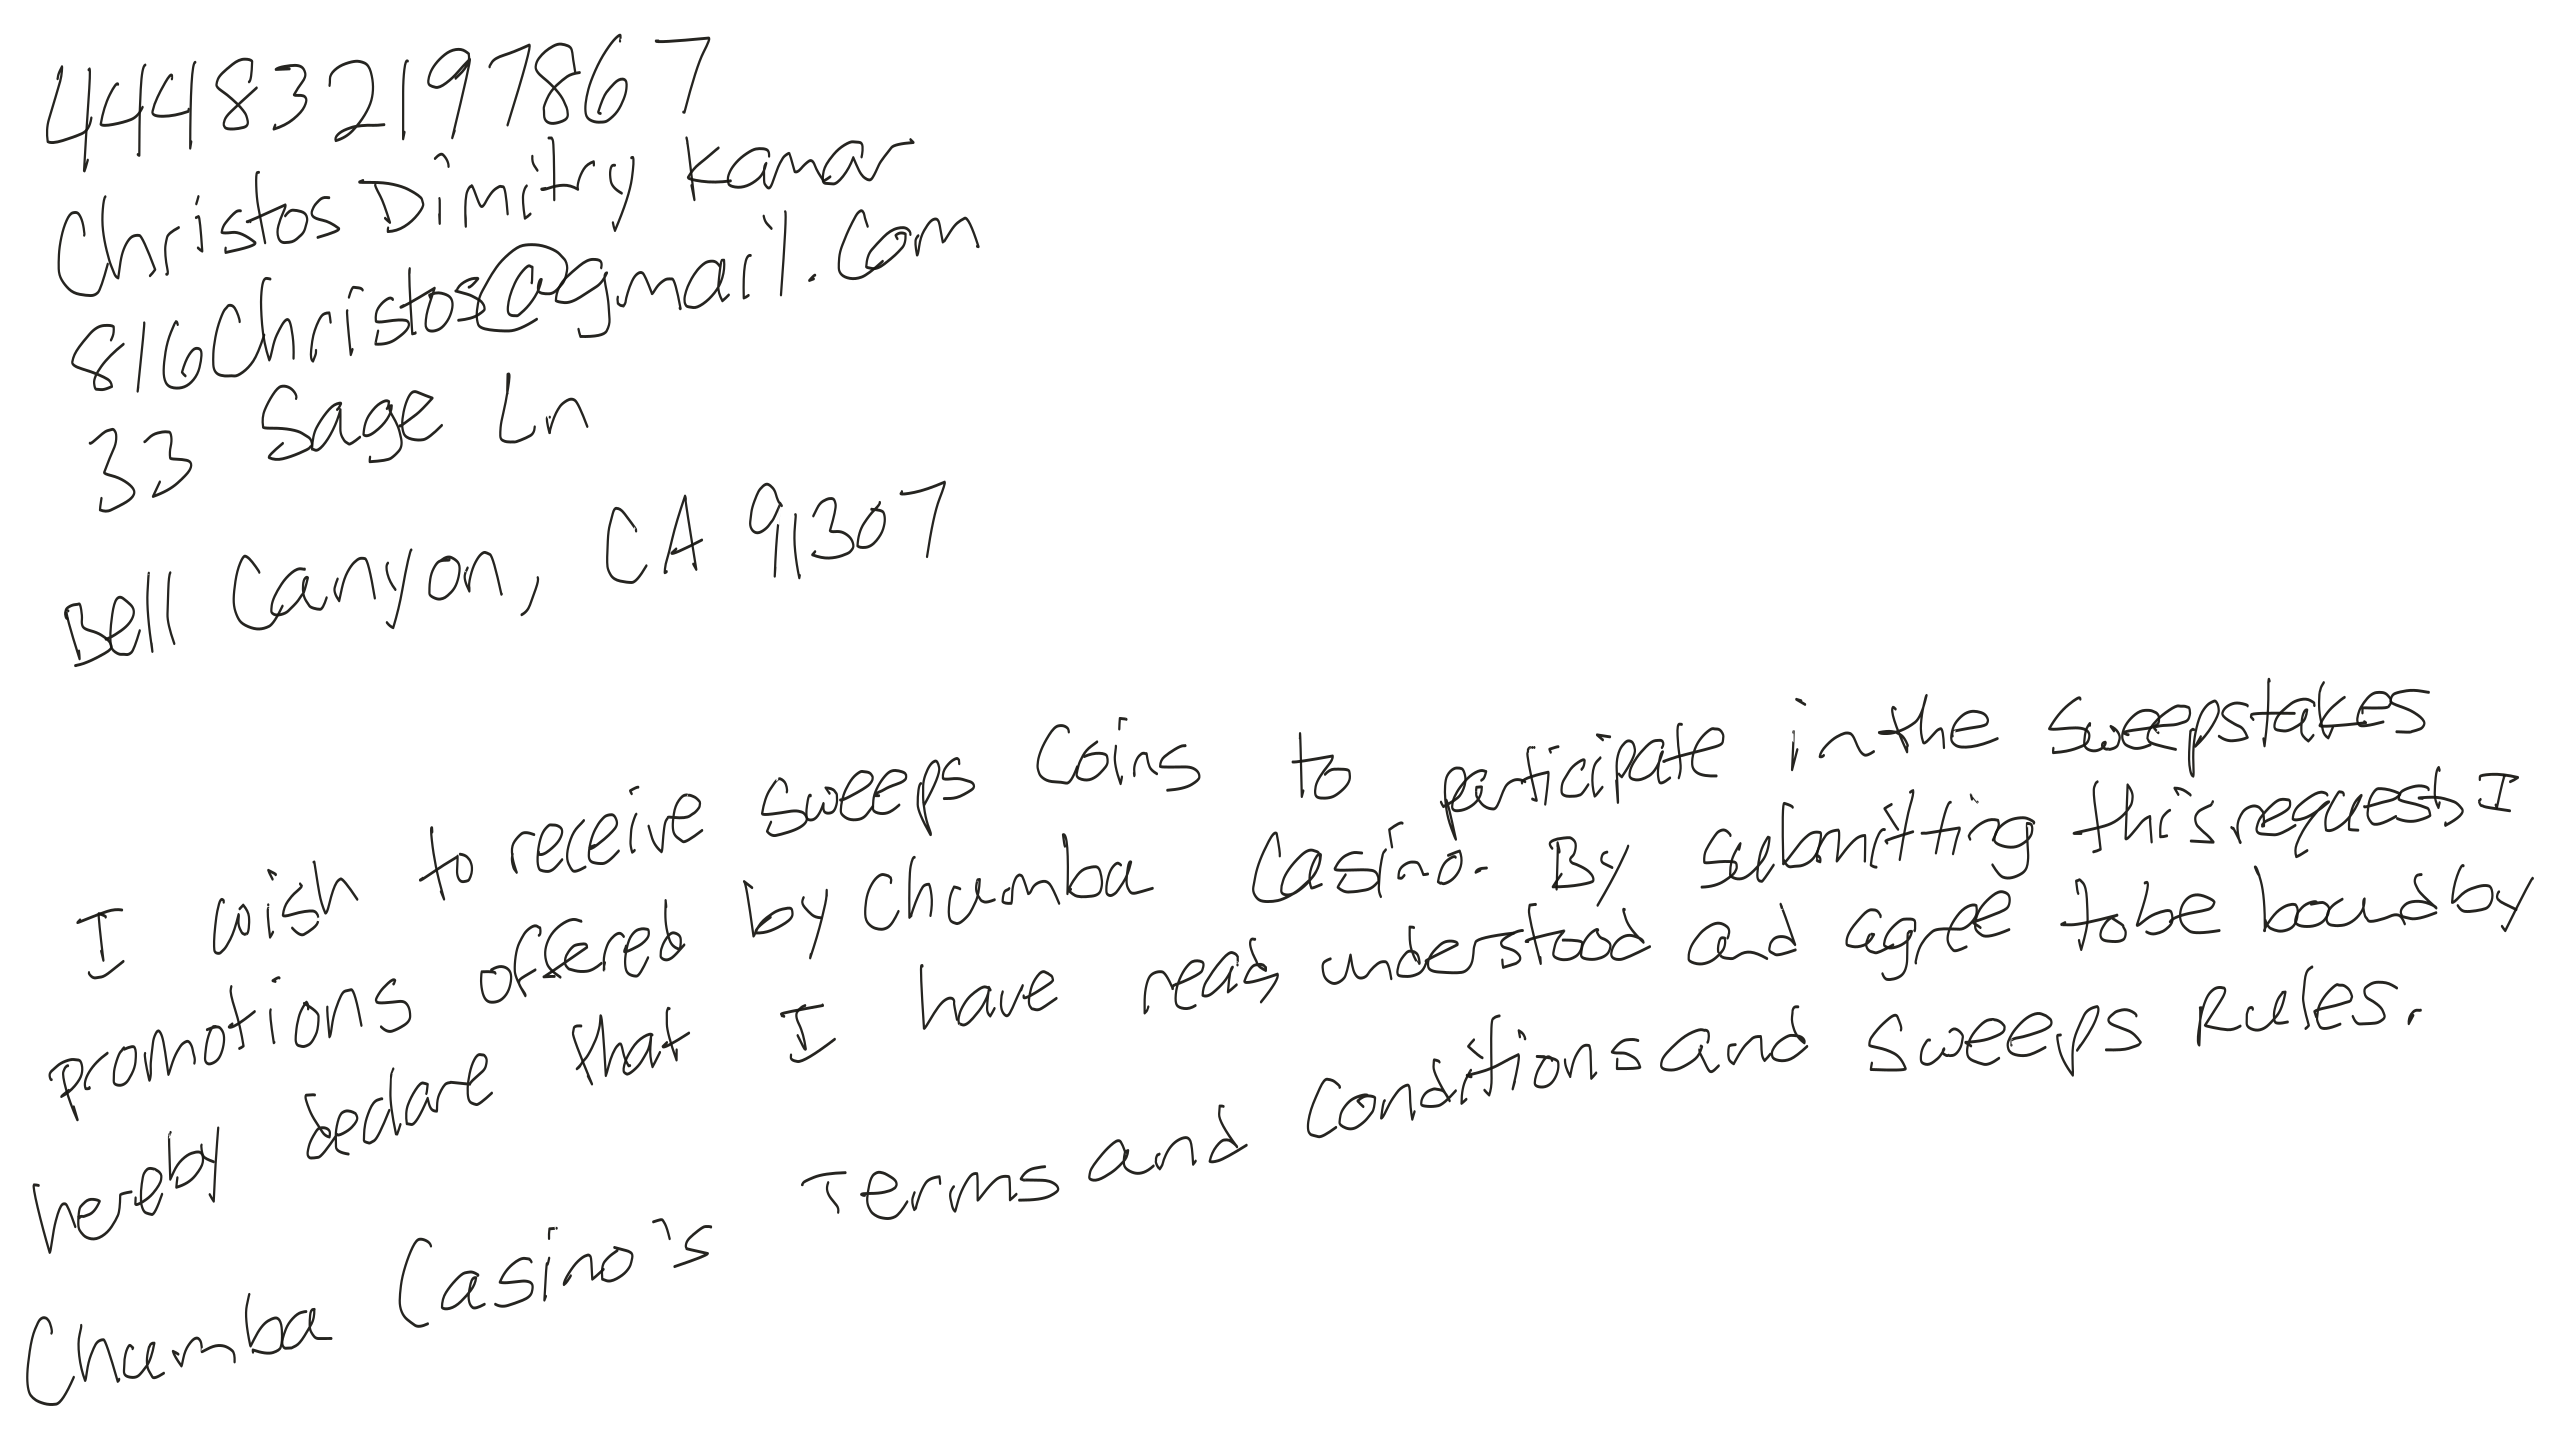 444832197867
Christos Dimitry Kamar
816Christos@gmail.com
33 Sage Ln
Bell Canyon, CA 91307
I wish to receive sweeps Coins to participate in the sweepstakes
promotions offered by Chumba Casino. By submitting this request, I
hereby declare that I have read, understood and agree to be bound by
Chumba Casino's Terms and Conditions and Sweeps Rules.